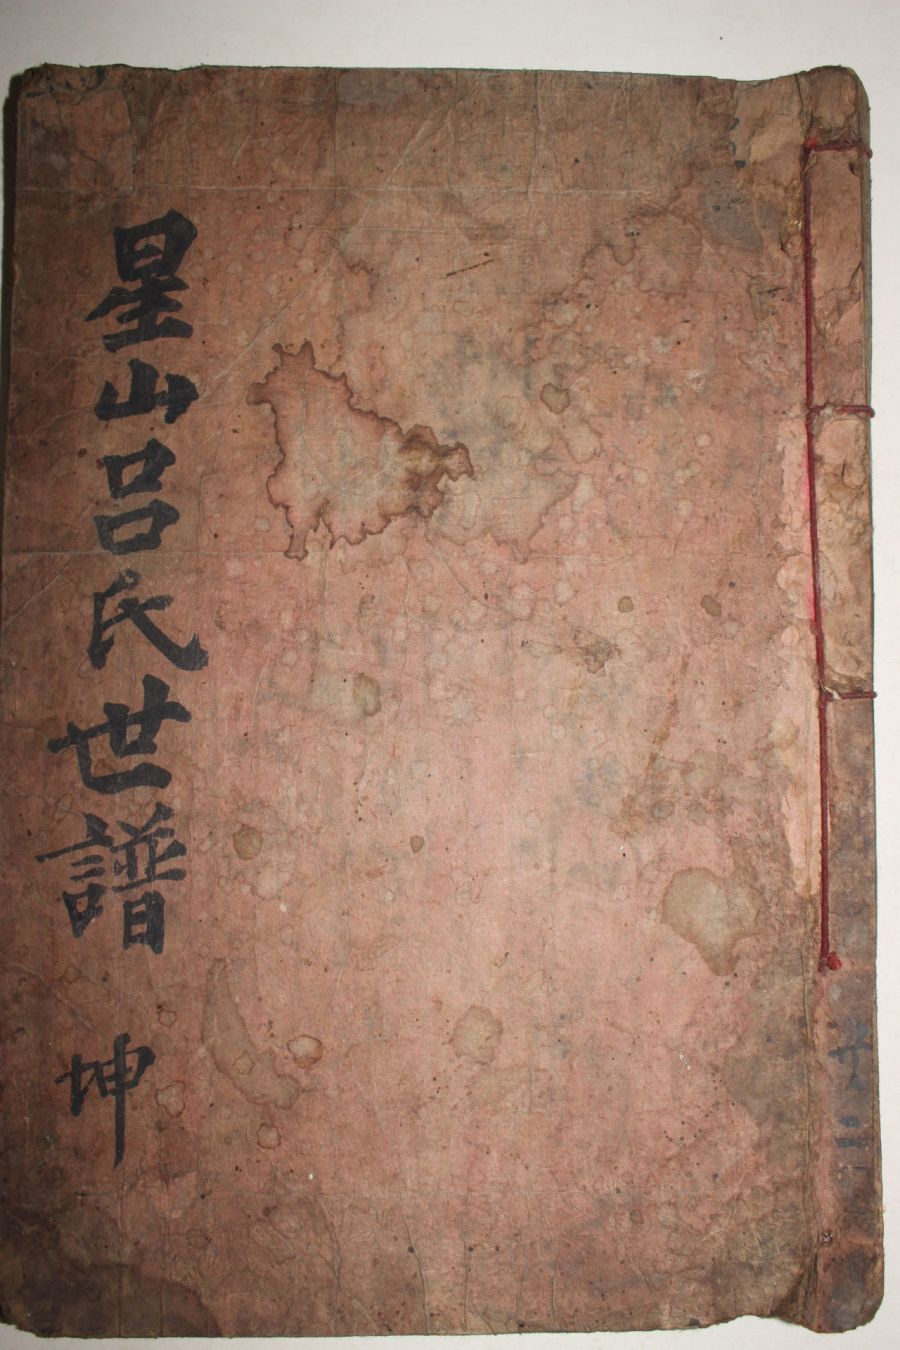 星山呂氏世譜 坤